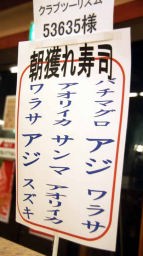 クラブツーリズム
53635様
朝獲れ寿司
バチマグロ アジ ワラサ
アオリイカ サンマ アオリイカ
ワラサ アジ スズキ